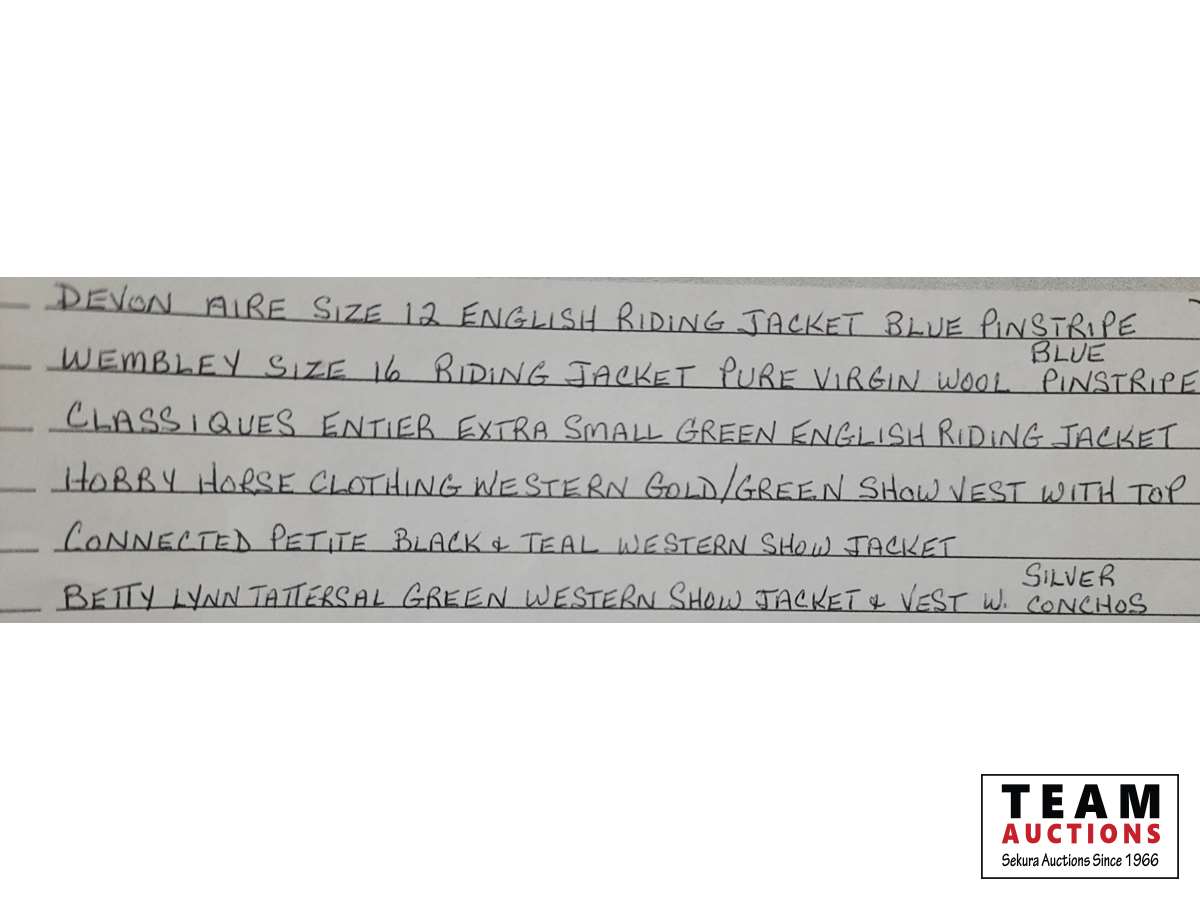 DEVON AIRE SIZE 12 ENGLISH RIDING JACKET BLUE PINSTRIPE
WEMBLEY SIZE 16 RIDING JACKET PURE VIRGIN WOOL BLUE PINSTRIPE
CLASSIQUES ENTIER EXTRA SMALL GREEN ENGLISH RIDING JACKET
HOBBY HORSE CLOTHING WESTERN GOLD/GREEN SHOW VEST WITH TOP
CONNECTED PETITE BLACK & TEAL WESTERN SHOW JACKET
BETTY LYNN TATTERSAL GREEN WESTERN SHOW JACKET & VEST W. SILVER CONCHOS
TEAM
AUCTIONS
Sekura Auctions Since 1966